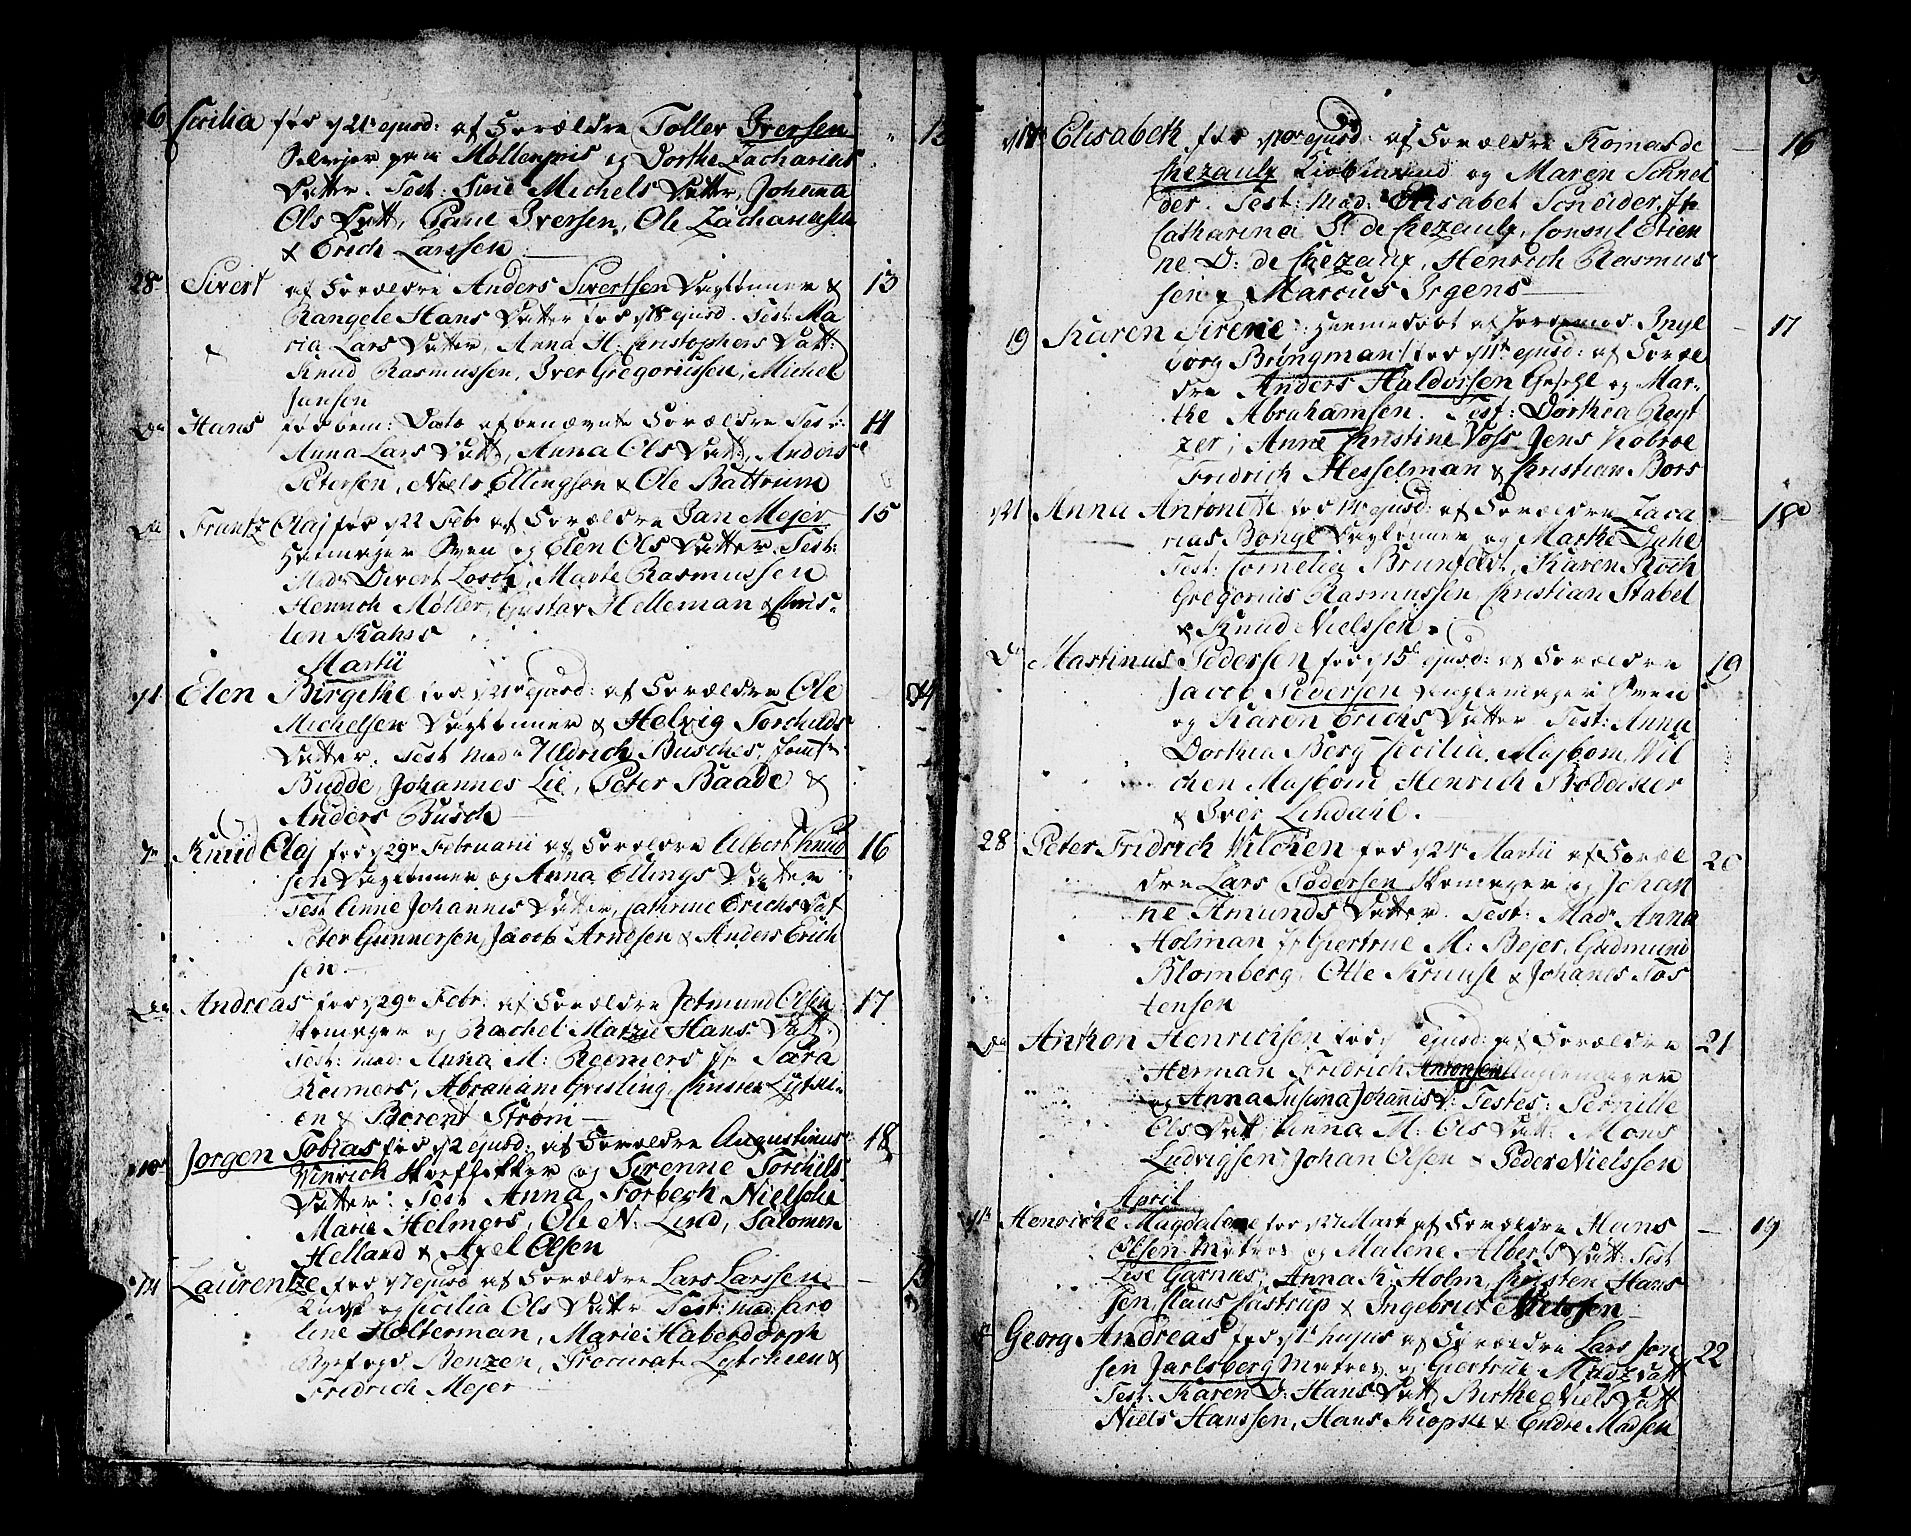 26 Cecilia fød d 21 ejusd: af Forældre Toller Iversen 13
paa Møllenpris og Dorthe Zacharias
Datter. Test: Sirie Michels Datter, Johana
Ols Datt, Paul Iversen, Ole Zachariassen
& Erich Larssen
28 Sivert af Forældre Anders Sivertsen Daglønner & 13
Rangele Hans Datter fød d 18 ejusd. Test: Ma
ria Lars Datter, Anna H: Christophers Datt:
Knud Rasmussen, Iver Gregoriussen, Michel
Jansen
Do Hans fød bem: Dato af benævnte Forældre Test: 14
Anna Lars Datt, Anna Ols Datt, Anders
Petersen, Niels Ellingsen & Ole Battrum
Do Frantz Olaj fød d 22 Feb af Forældre Jan Mejer 15
Hatmager Sven og Elen Ols Datter. Test:
Mad Divert Losch, Marte Rasmussen
Henrich Møller, Gustav Helleman & Chris-
ten Kahrs
Martii
d 1 Elen Birgithe fød d 21 ejusd: af Forældre Ole 14
Michelsen Daglønner & Helvig Torchilds
Datter. Test Mad Uldrich Busches, Jomfr
Budde, Johannes Lie, Peter Baade &
Anders Busch
7 Knud Olaj fød d 29 Februarii af Forældre Albert Knud 16
sen Daglønner og Anna Ellings Datter
Test Anne Johannes Datter, Cathrine Erichs Dat
Peter Gunnersen, Jacob Arnesen & Anders Erich
sen
Do Andreas fød d 29 Febr: af Forældre Jetmund Olsen 17
Skomager og Rachel Marie Hans Datt.
Test: Mad: Anna M: Reimers Jfr Sara
Reimers, Abraham Grisling,
en & Berent Strøm
d 10 Jørgen Tobias fød d 2 ejusd: af Forældre Augustinus 18
Hinrich og Sirenne Torchils
Datter: Test Anna Forbech, Nielsche
Marie Helmers, Ole N: Lind, Salomon
Helland & Axel Olsen
d 14 Laurentze fød d 7 ejusd af Forældre Lars Larssen 15
og Cicilia Ols Datter Test: Mad: Caro
line Holterman, Marie Haberdorph
Byefogd Benzen, Procurat
Fridrich Mejer
d 17 Elisabeth fød d 10 ejusd: af Forældre Thomas de 16
Chezaulx Kiøbmand og Maren Schnei
der. Test: Mad: Elisabet Sneider, Jfr
Catharina S: de Chezaulx, Consul Etien
ne D: de Chezaulx, Henrich Rasmus
sen & Marcus Irgens
19 Karen Sirene: hiemedøbt af Jordemod: Inge 17
borg Bringman/ fød d 11 ejusd: af Foræl
dre Anders Haldorsen Gesehl og Mar-
the Abrahamsen. Test: Dorthea Røgt
zer, Anne Christine Voss Jens Kobroe
Fridrich Hesselman & Christian Bors
d 21 Anna Antonette fød d 14 ejusd: af Forældre Zaca 18
rias Bonge Daglønner og Marthe Duhe
Test: Cornelia Brunfeldt, Karen Koch
Gregorius Rasmussen, Christian Stabel
& Knud Nielssen.
Do Martinus Pedersen fød d 15 ejusd: af Forældre 19
Jacob Pedersen Sven
og Karen Erichs Datter Test: Anna
Dorthea Berg Cecilia Majbom, Wil
chen Majbom Henrich Bødecker
& Iver Lindahl.
28 Peter Fridrich Wilchen fød d 24 Martii af Foræl 20
dre Lars Pedersen Skomager og Johan
ne Amunds Datter. Test: Mad Anna
Holman Jfr Giertrue M: Bejer, Gudmund
Blomberg, Olle Kruuse & Johanes Tos
tensen
Do Anthon Henrichsen fød d ejusd: af Forældre 21
Herman Fridrich Antonsen
og Anna Susanna Johannis D: Testes: Pernille
Ols Datt, Anna M: Ols Datt: Mons
Ludvigsen, Johan Olsen & Peder Nielssen
April
d 1 Henriche Magdalene fød d 27 Mart af Forældre Hans 19
Olsen Matros og Malene Alberts Datt: Test
Lise Garnus, Anna K: Holm, Christen Hans
sen, Claus Castrup & Ingebricte Nielssen
Georg Andreas fød d 1 hujus af Forældre Lars Jon 22
sen Jarlsberg Matros og Giertrue Mads Datt
Test: Karen D: Hans Datt, Birthe Niels Datt
Niels Hanssen, Hans Kiopste & Endre Madsen